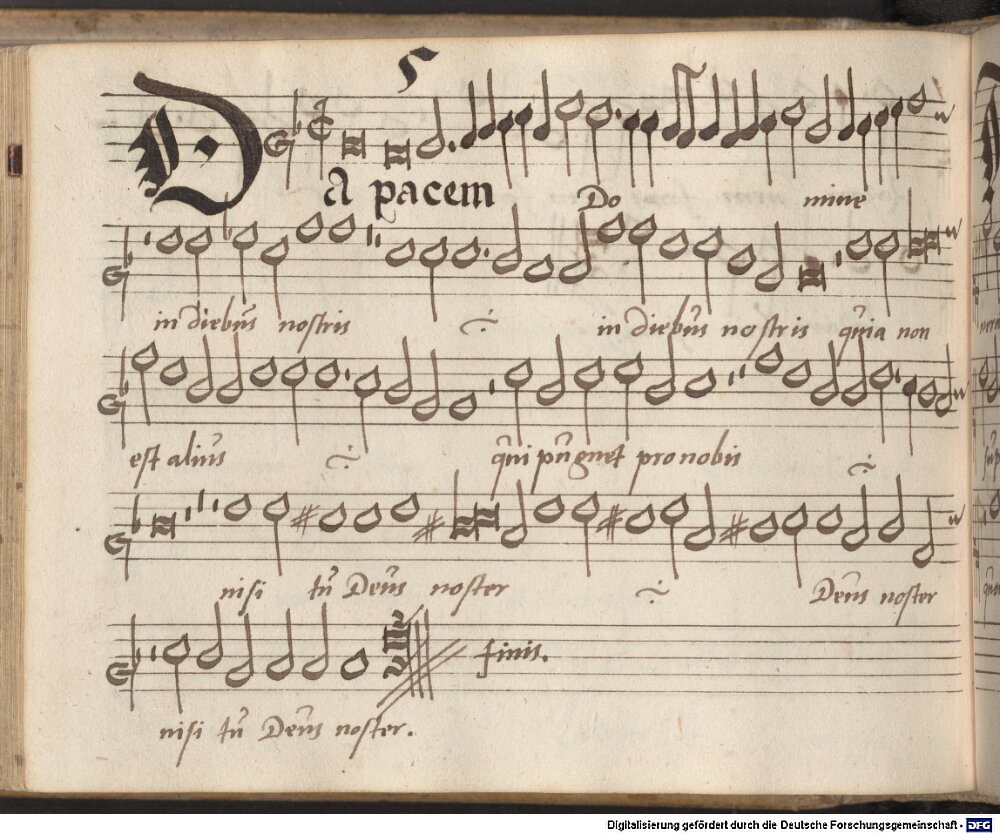 5
DA pacem Do mine
in diebus nostris ·/· in diebus nostris quia non
est alius ·/· qui pugnet pro nobis ·/·
nisi tu Deus noster ·/· Deus noster
finis.
nisi tu Deus noster.
Digitalisierung gefördert durch die Deutsche Forschungsgemeinschaft - DFG